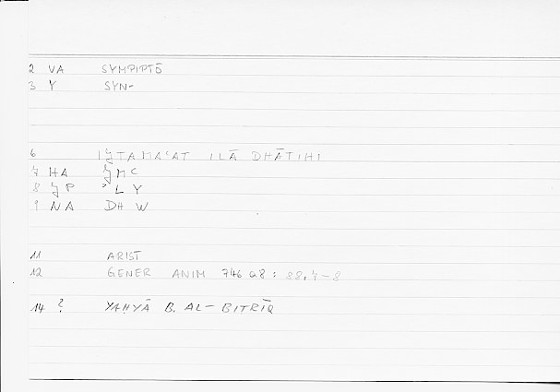 2 VA SYMPIPTŌ
3 Y SYN-
6 IǦTAMAʿAT ILĀ DHĀTIHI
7 HA ǦMC
8 ǦP ʾLY
9 NA DHW
11 ARIST
12 GENER ANIM 746 a8: 88.7-8
14 ? YAḤYĀ B. AL-BITRĪQ